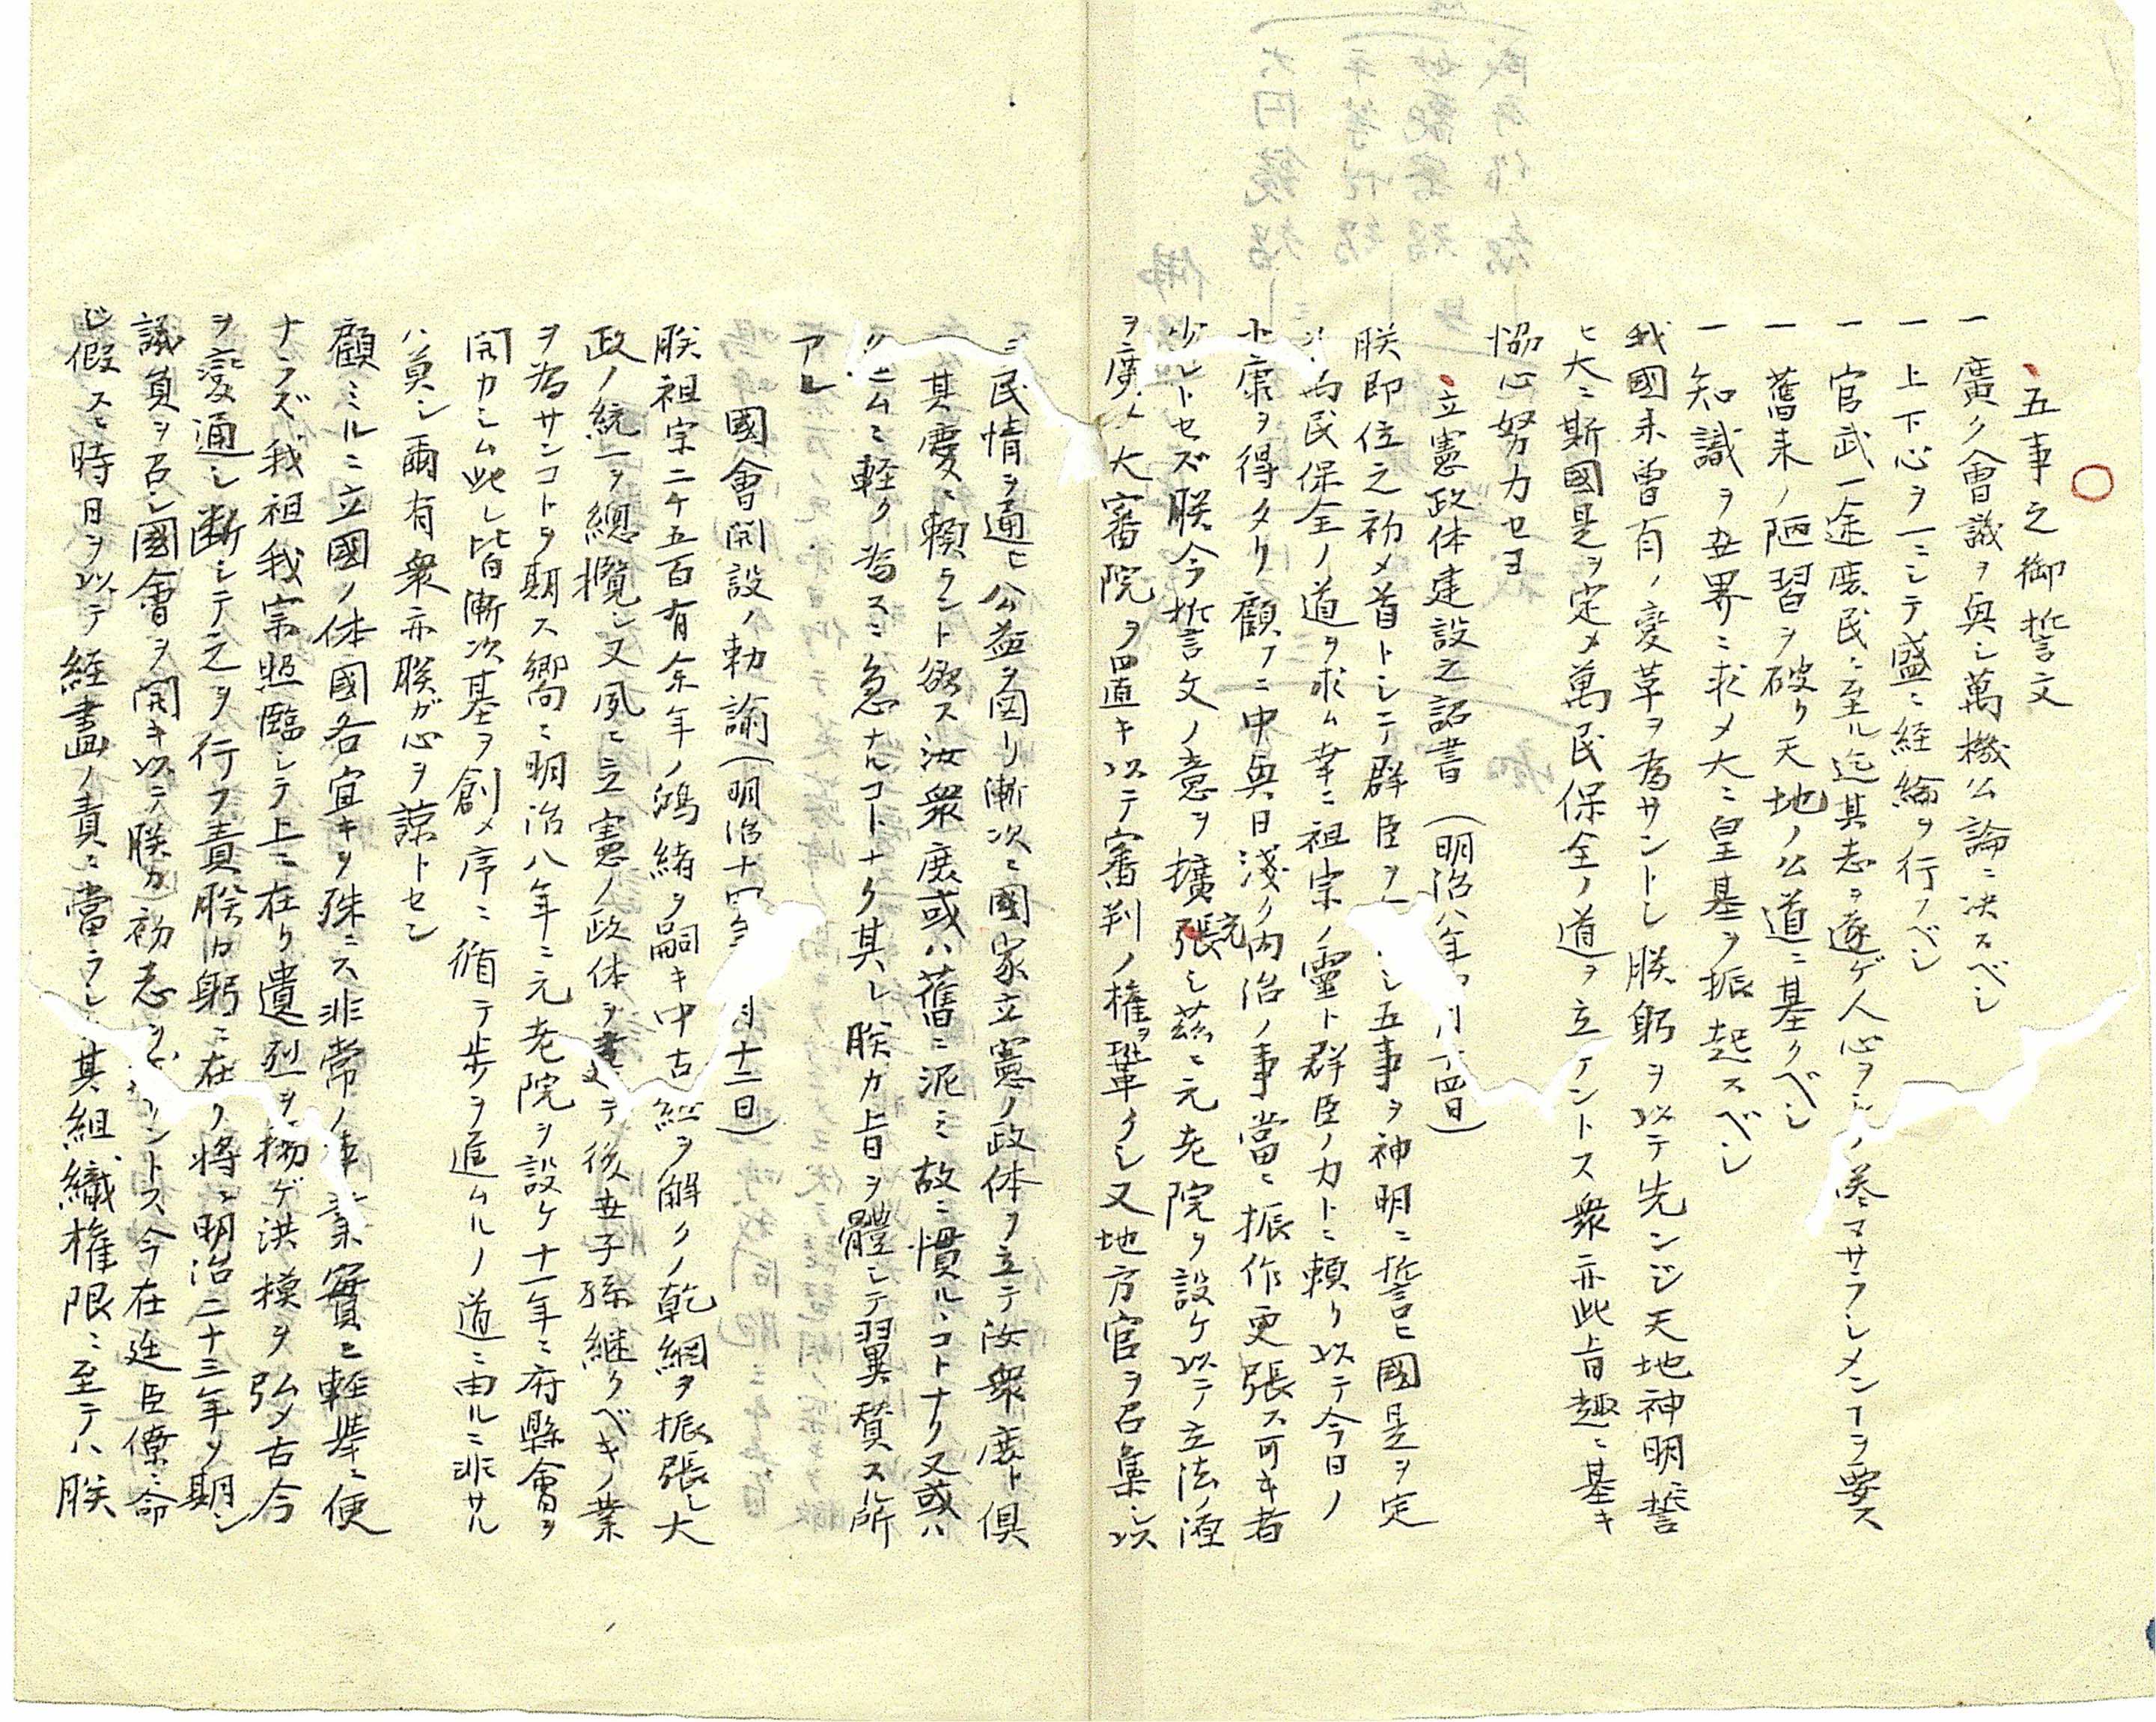 五事之御誓文
一 廣ク會議ヲ興シ萬機公論ニ决スベシ
一 上下心ヲ一ニシテ盛ニ経綸ヲ行ノベシ
一 官武一途庶民ニ至ル迄其志ヲ遂ゲ人心ヲシノ惓マサラシメンヿヲ要ス
一 舊来ノ陋習ヲ破リ天地ノ公道ニ基クベシ
一 知識ヲ世界ニ求メ大ニ皇基ヲ振起スベシ
我國未曽有ノ変革ヲ為サントシ朕躬ヲ以テ先ンジ天地神明ニ誓
ヒ大ニ斯國是ヲ定メ萬民保全ノ道ヲ立ケントス衆亦此旨趣ニ基キ
協心努力セヨ
立憲政体建設之詔書（明治八年 月十四日）
朕即位之初メ首トシテ群臣ヲ シ五事ヲ神明ニ誓ヒ國是ヲ定
メ万民保全ノ道ヲ求ム幸ニ祖宗ノ靈ト群臣ノカトニ頼リ以テ今日ノ
小康ヲ得タリ顧フニ中興日淺ク内治ノ事當ニ振作更張ス可キ者
少シトセズ朕今誓文ノ意ヲ擴張充シ茲ニ元老院ヲ設ケ以テ立法ノ源
ヲ廣メ大審院ヲ置キ以テ審判ノ権ヲ鞏クシ又地方官ヲ召集シ以
テ民情ヲ通ヒ公益ヲ図リ漸次ニ國家立憲ノ政体ヲ立テ汝衆庶ト倶
ニ其慶ニ頼ラント欲ス汝衆庶或ハ舊ニ泥ミ故ニ慣ルヽコトナク又或ハ
クニムミ軽ク為スニ急ナルコトナク其レ朕ガ旨ヲ體シテ翼賛スル所
アレ
國會開設ノ勅諭（明治十四年 月十二日）
朕祖宗二千五百有余年ノ鴻緒ヲ嗣キ中古 ヲ解クノ乾綱ヲ振張シ大
政ノ統一ヲ總攬シ又夙ニ立憲ノ政体ヲ建テ後世子孫継クベキノ業
ヲ為サンコトヲ期ス嚮ニ明治八年ニ元老院ヲ設ケ十一年ニ府縣會ヲ
開カシム此レ皆漸次基ヲ創メ序ニ循テ歩ヲ進ムルノ道ニ由ルニ非サル
ハ莫シ爾有衆亦朕ガ心ヲ諒トセン
顧ミルニ立國ノ体國各宜キヲ殊ニス非常ノ事業實ニ軽挙ニ便
ナラズ我祖我宗照臨シテ上ニ在リ遺烈ヲ揚ゲ洪模ヲ弘メ古今
ヲ変通シ断シテ之ヲ行フ責朕カ躬ニ在リ將ニ明治二十三年ヲ期シ
議員ヲ召シ國會ヲ開キ以テ朕カ初志ヲ ントス今在廷臣僚ニ命
ジ假スニ時日ヲ以テ経畫ノ責ニ當ラシ 其組織権限ニ至テハ朕